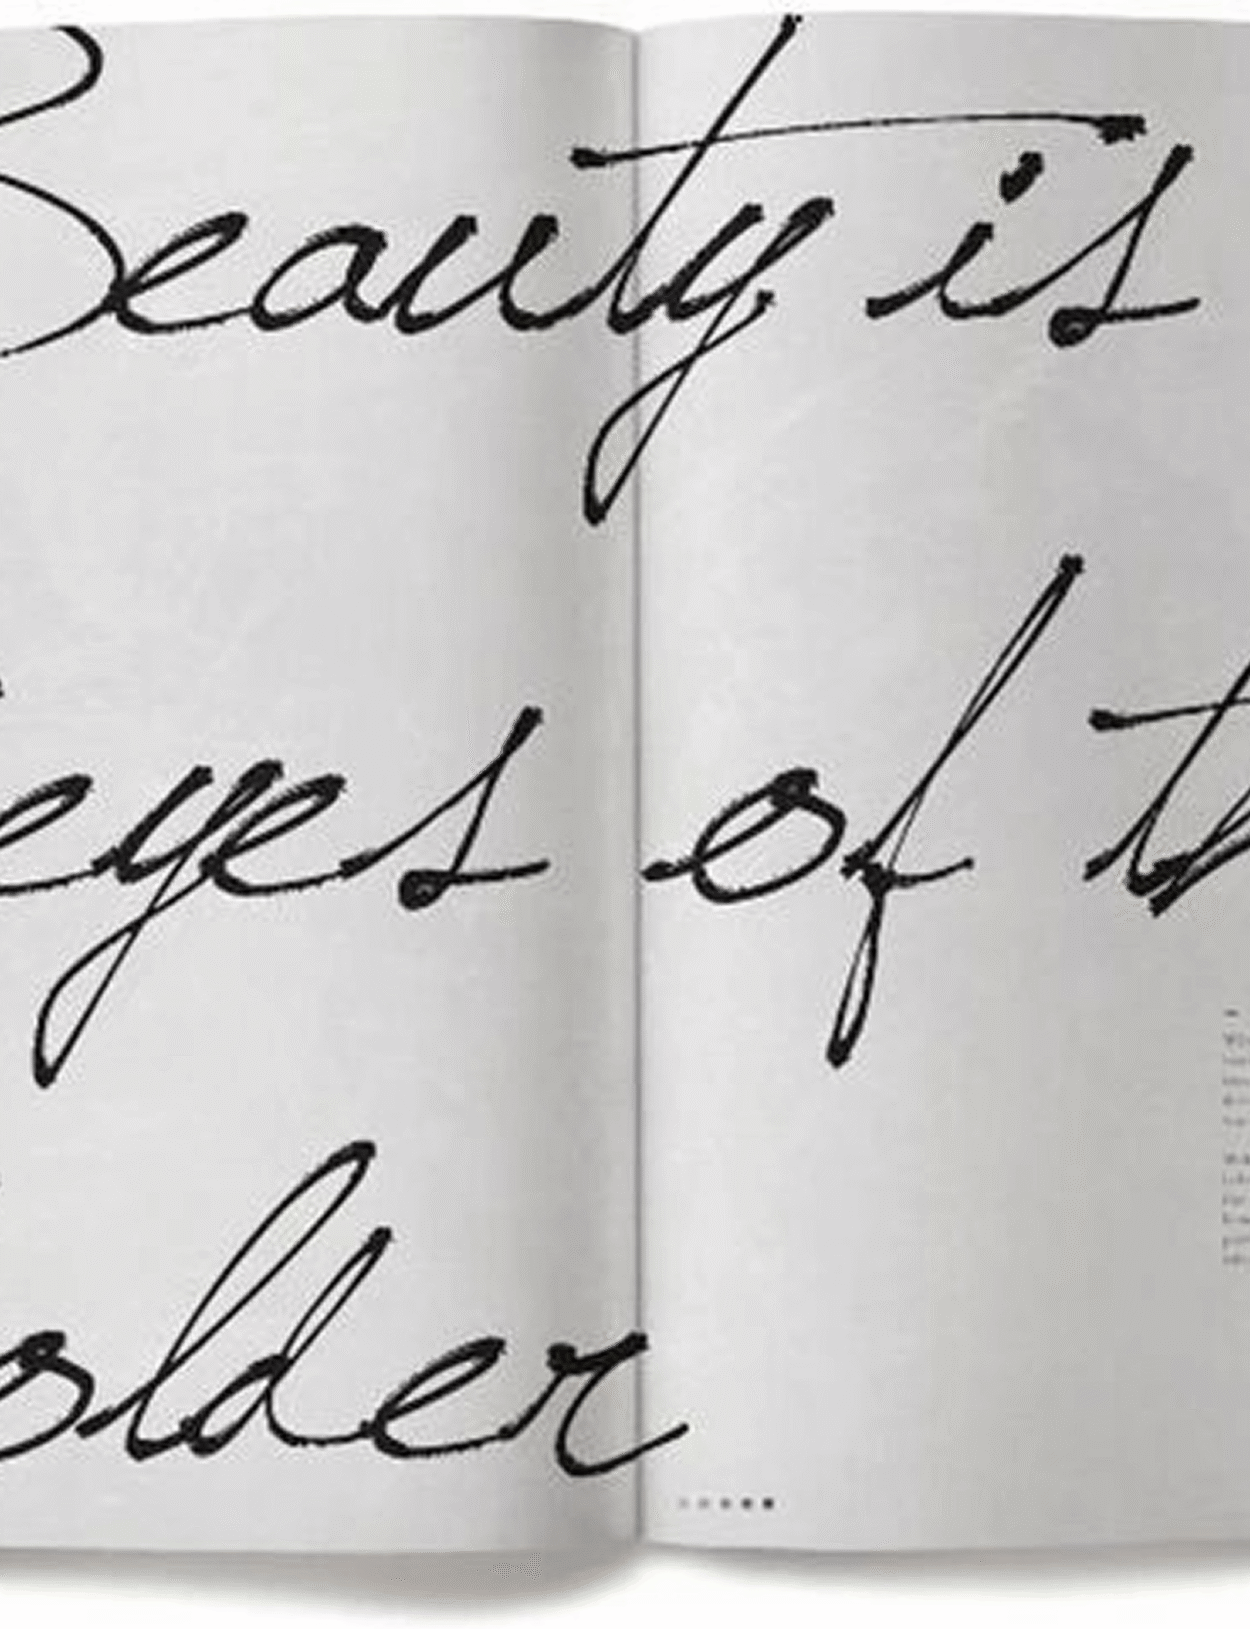 Beauty is
eyes of th
older